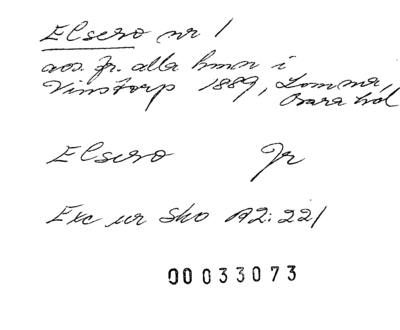 Elsero nr 1
avs. fr. alla hmn i
Vinstorp 1889, Lomma,
Bara hd
Elsero Jr
Exc ur Sko A2:221
00033073